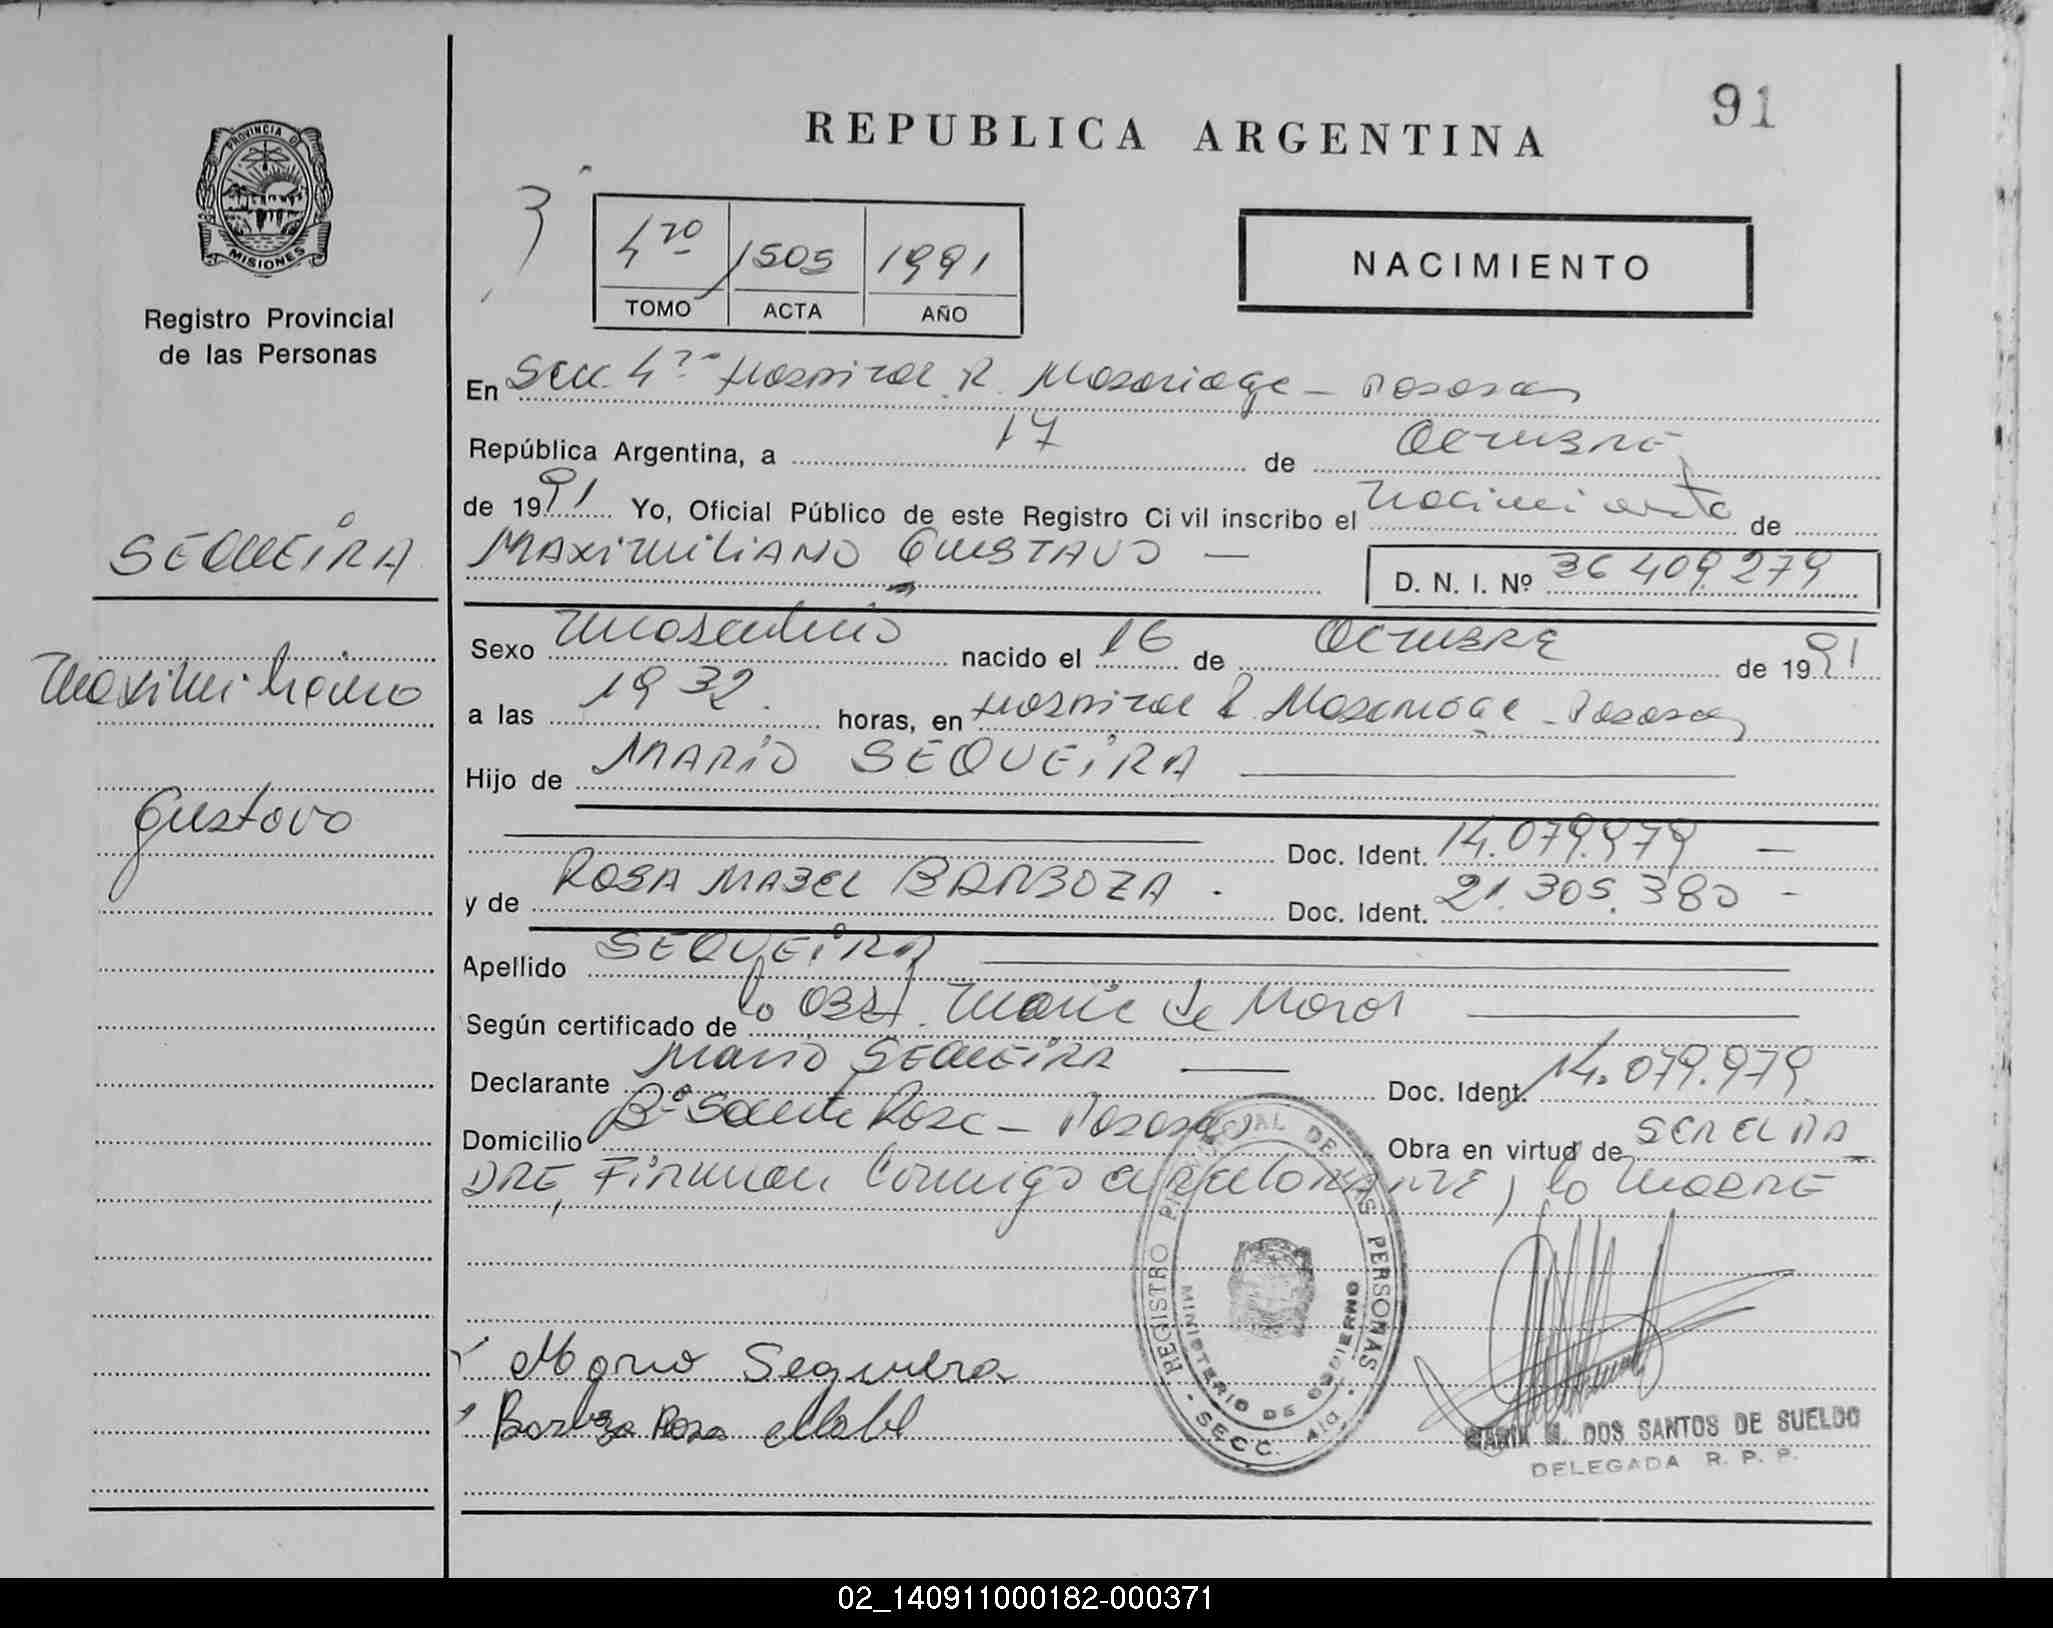 91
REPUBLICA ARGENTINA
PROVINCIA DE
MISIONES
Registro Provincial
de las Personas
3
4to 1505 1991
TOMO ACTA AÑO
NACIMIENTO
En Secc. 4ta Hospital R. Madariaga - Posadas
República Argentina, a 17 de Octubre
de 1991 Yo, Oficial Público de este Registro Civil inscribo el nacimiento de
SEQUEIRA
MAXIMILIANO GUSTAVO -
D. N. I. Nº 36 409.279
Sexo masculino nacido el 16 de Octubre de 1991
Maximiliano
a las 19 32. horas, en Hospital R. Madariaga - Posadas
Hijo de MARIO SEQUEIRA
Gustavo
Doc. Ident. 14.079.979 -
y de ROSA MABEL BARBOZA. Doc. Ident. 21.305.380 -
Apellido SEQUEIRA
Según certificado de la Obst. Maria de
Declarante Mario SEQUEIRA - Doc. Ident. 14.079.979
Domicilio Bº Santa Rosa - Posadas Obra en virtud de SER EL PA-
DRE, Firman conmigo el declarante y la MADRE
REGISTRO PROVINCIAL DE LAS PERSONAS
MINISTERIO DE GOBIERNO
SECC. 4ta
Mario Sequeira
Barboza Rosa Mabel
MARIA M. DOS SANTOS DE SUELDO
DELEGADA R. P. P.
02_140911000182-000371